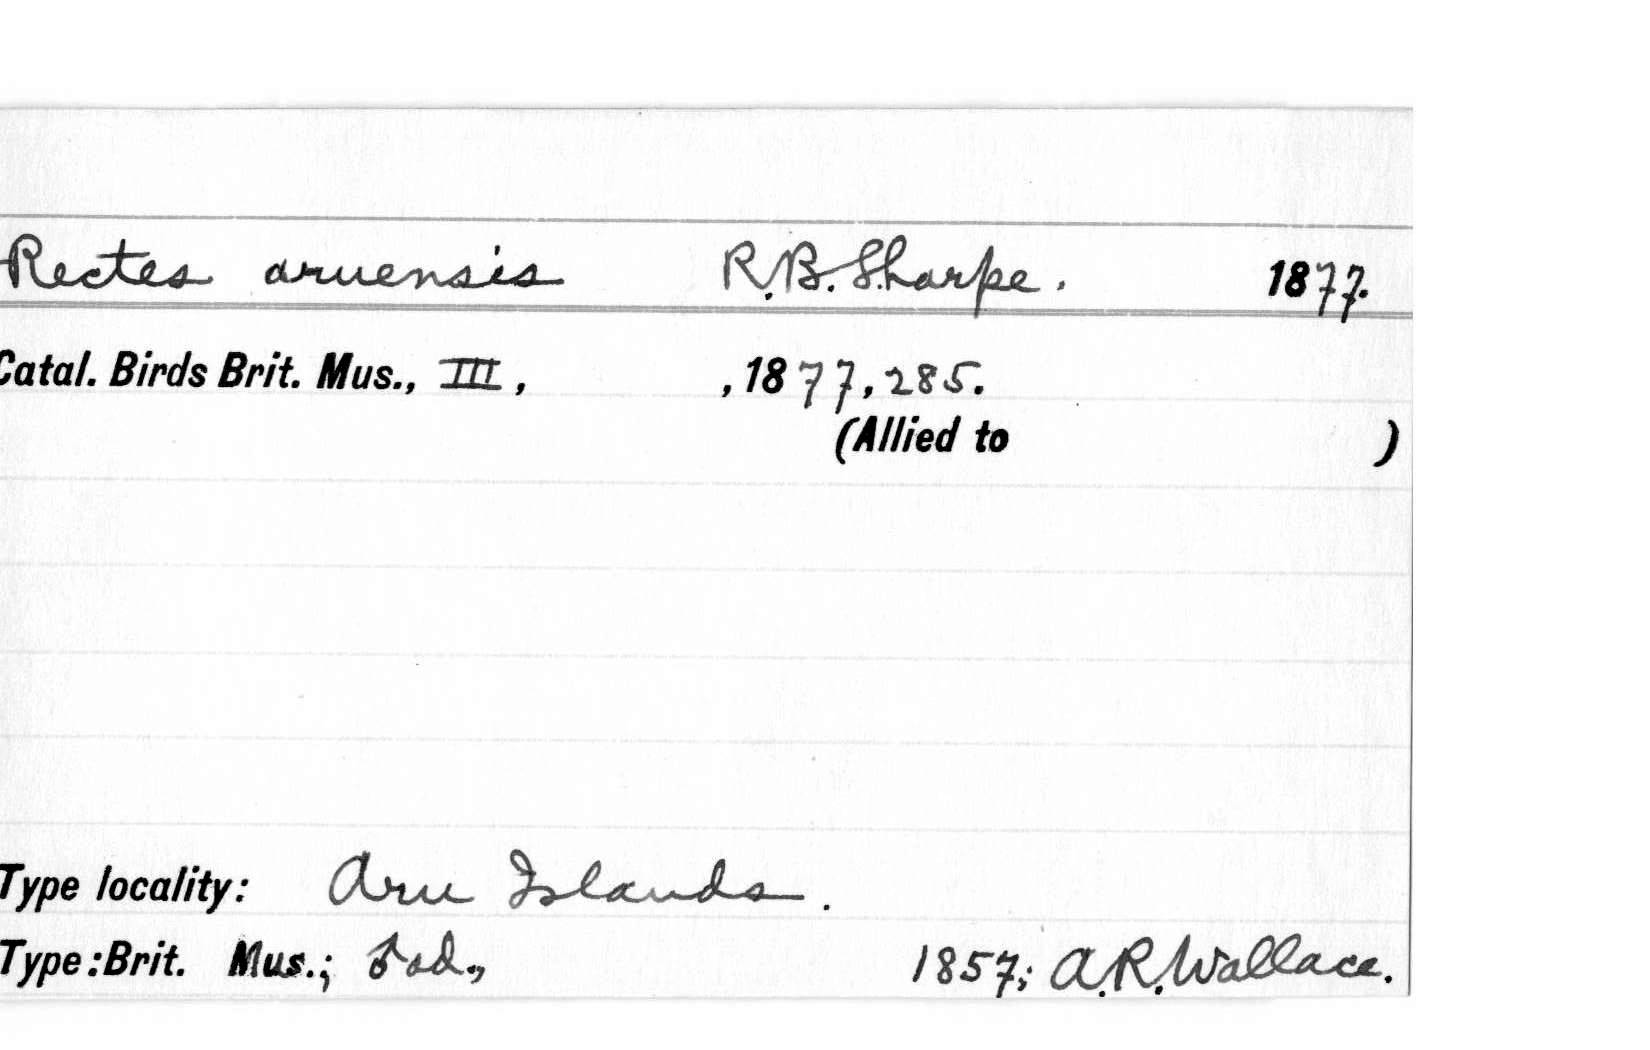 Rectes aruensis R.B.Sharpe. 1877.
Catal. Birds Brit. Mus., III, , 1877, 285.
(Allied to )
Type locality: Aru Islands.
Type: Brit. Mus.; ♂ ad., 1857; A.R.Wallace.